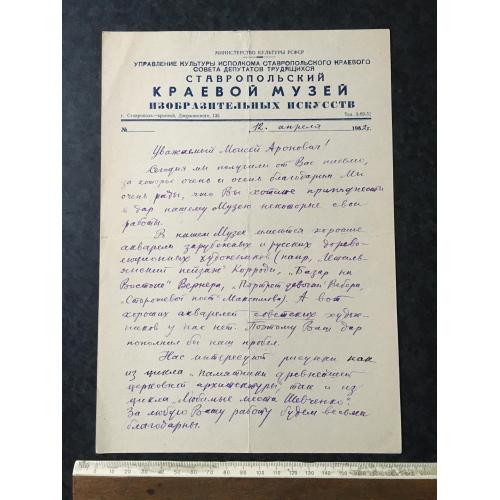 МИНИСТЕРСТВО КУЛЬТУРЫ РСФСР
УПРАВЛЕНИЕ КУЛЬТУРЫ ИСПОЛКОМА СТАВРОПОЛЬСКОГО КРАЕВОГО
СОВЕТА ДЕПУТАТОВ ТРУДЯЩИХСЯ
СТАВРОПОЛЬСКИЙ
КРАЕВОЙ МУЗЕЙ
ИЗОБРАЗИТЕЛЬНЫХ ИСКУССТВ
г. Ставрополь—краевой, Дзержинского,
Тел.
№ 12 апреля 1962г.
Уважаемый Моисей Аронович!
Сегодня мы получили от Вас письмо,
за которое очень и очень благодарим. Мы
очень рады, что Вы хотите преподнести
в дар нашему Музею некоторые свои
работы.
В нашем Музее имеются хорошие
акварели зарубежных и русских дорево-
люционных художников (напр. „Италь-
янский пейзаж" Корроди, „Базар на
Востоке" Вернера, „Портрет девочки" Вебера,
„Сторожевой пост" Максимова). А вот
хороших акварелей советских худож-
ников у нас нет. Поэтому Ваш дар
пополнил бы наш пробел.
Нас интересуют рисунки как
из цикла „Памятники древнейшей
церковной архитектуры", так и из
цикла „Любимые места Шевченко".
За любую Вашу работу будем весьма
благодарны.